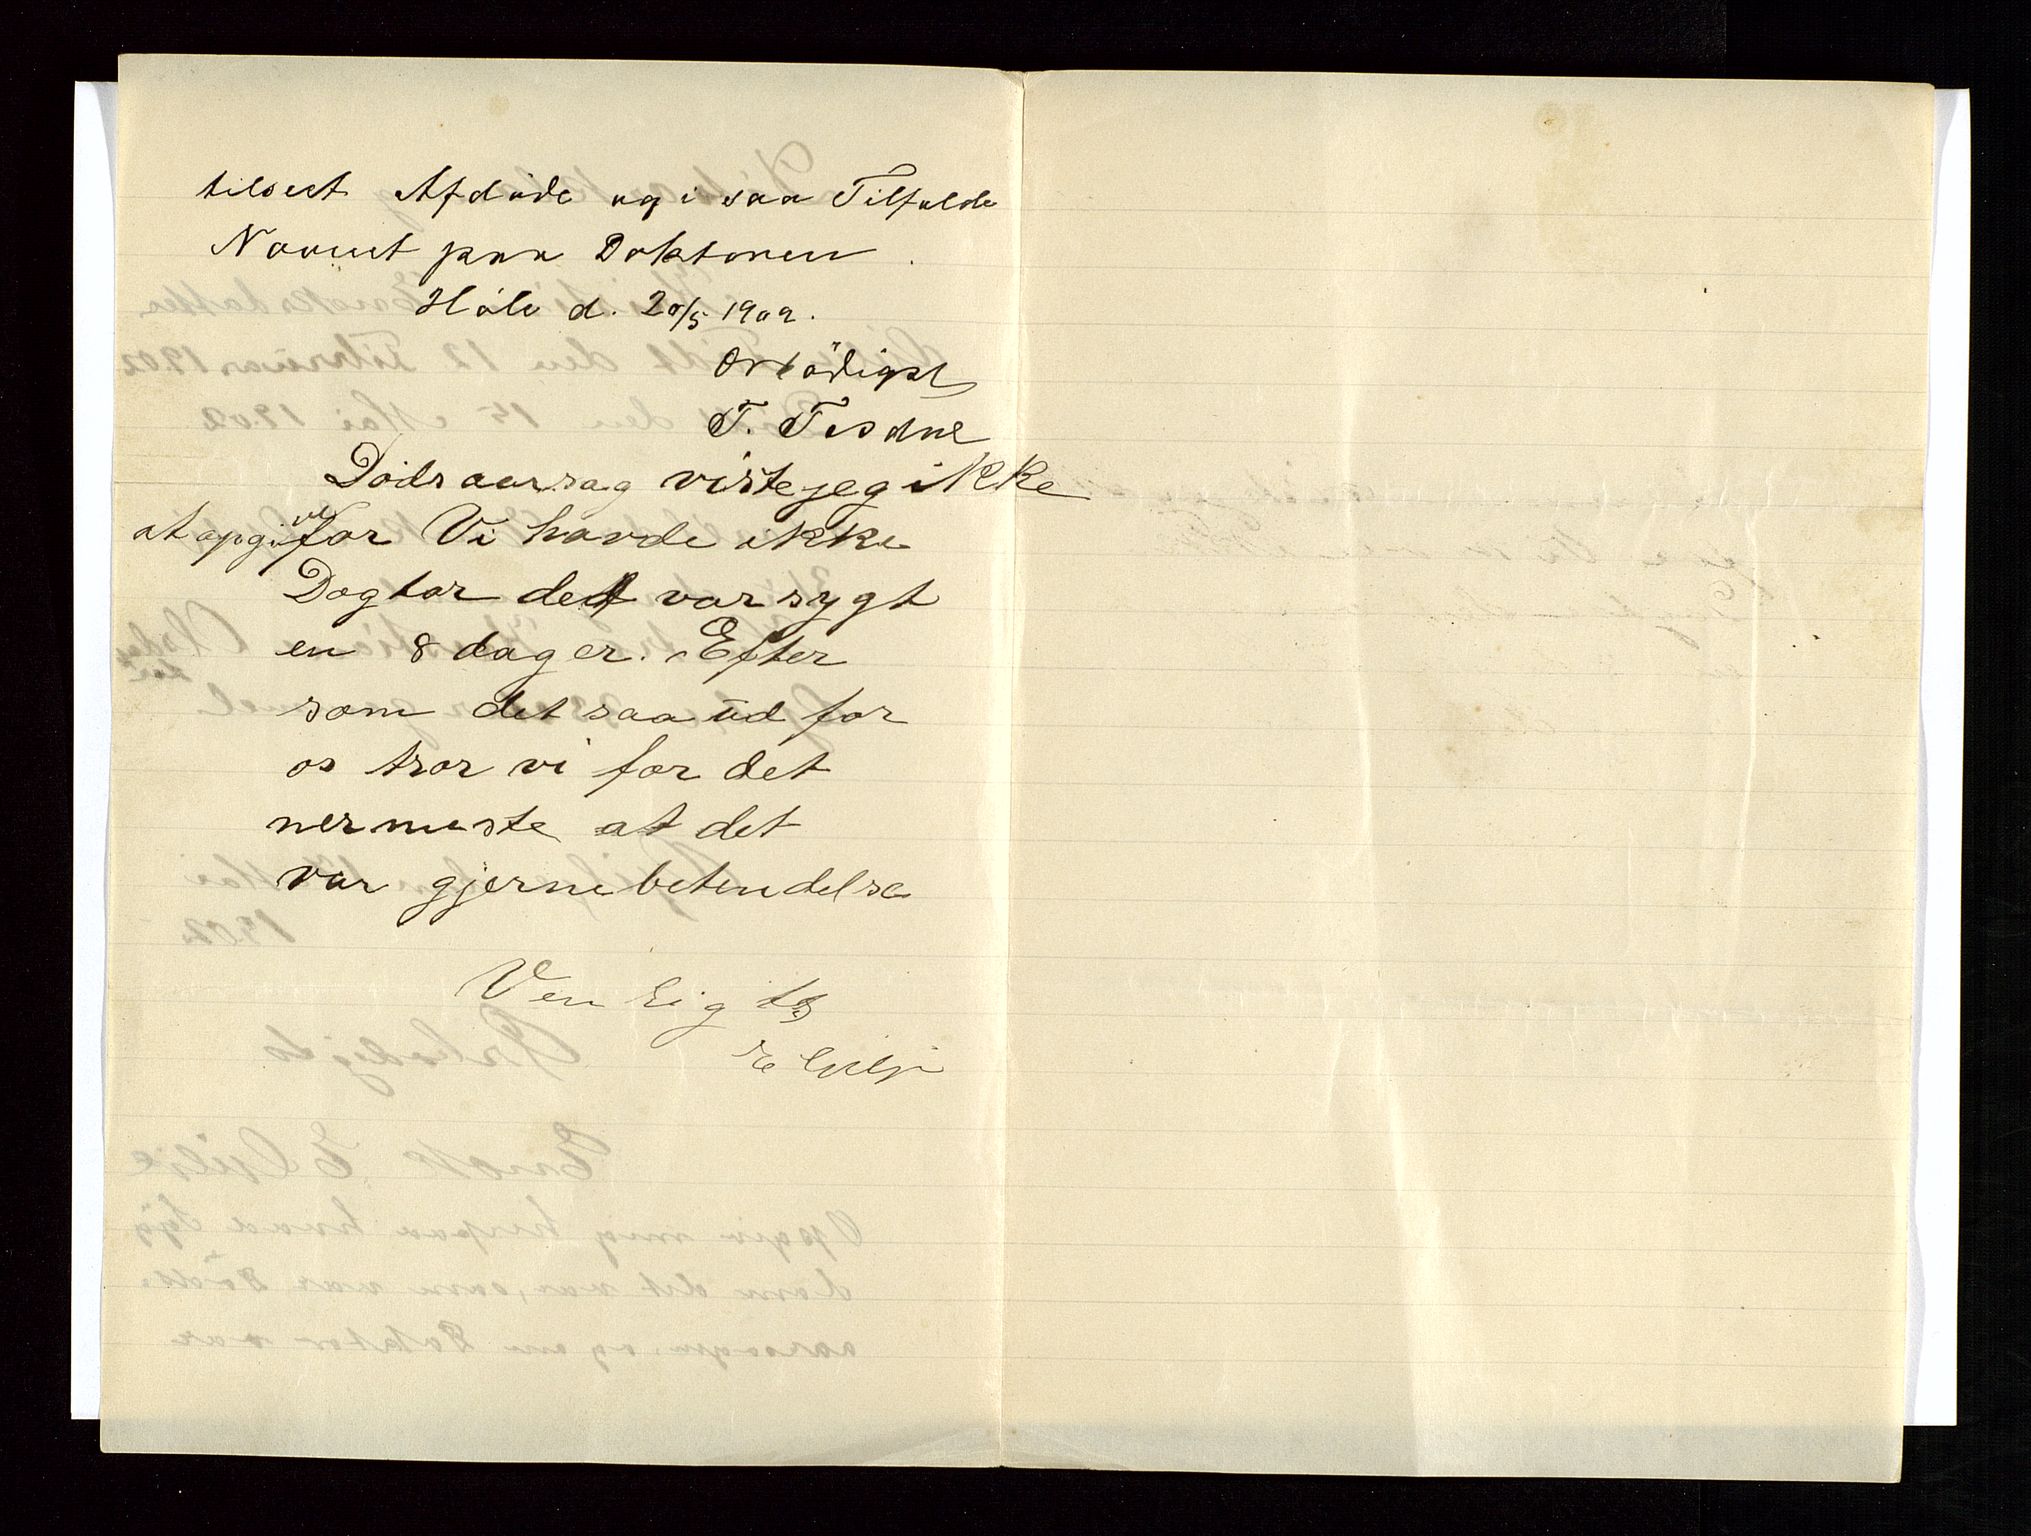 tilseet Afdøde og i saa Tilfelde
Navnet paa Doktoren.
Høle d. 20/5 1902.
Ærbödigst
T. Tesdal
Dødsaarsag viste jeg ikke
at opgive for Vi havde ikke
Dogtor det var sygt
en 8 dager. Efter
som det saa ud for
os tror vi for det
nermeste at det
var gjernebetendelse
Venligts
E Gilje